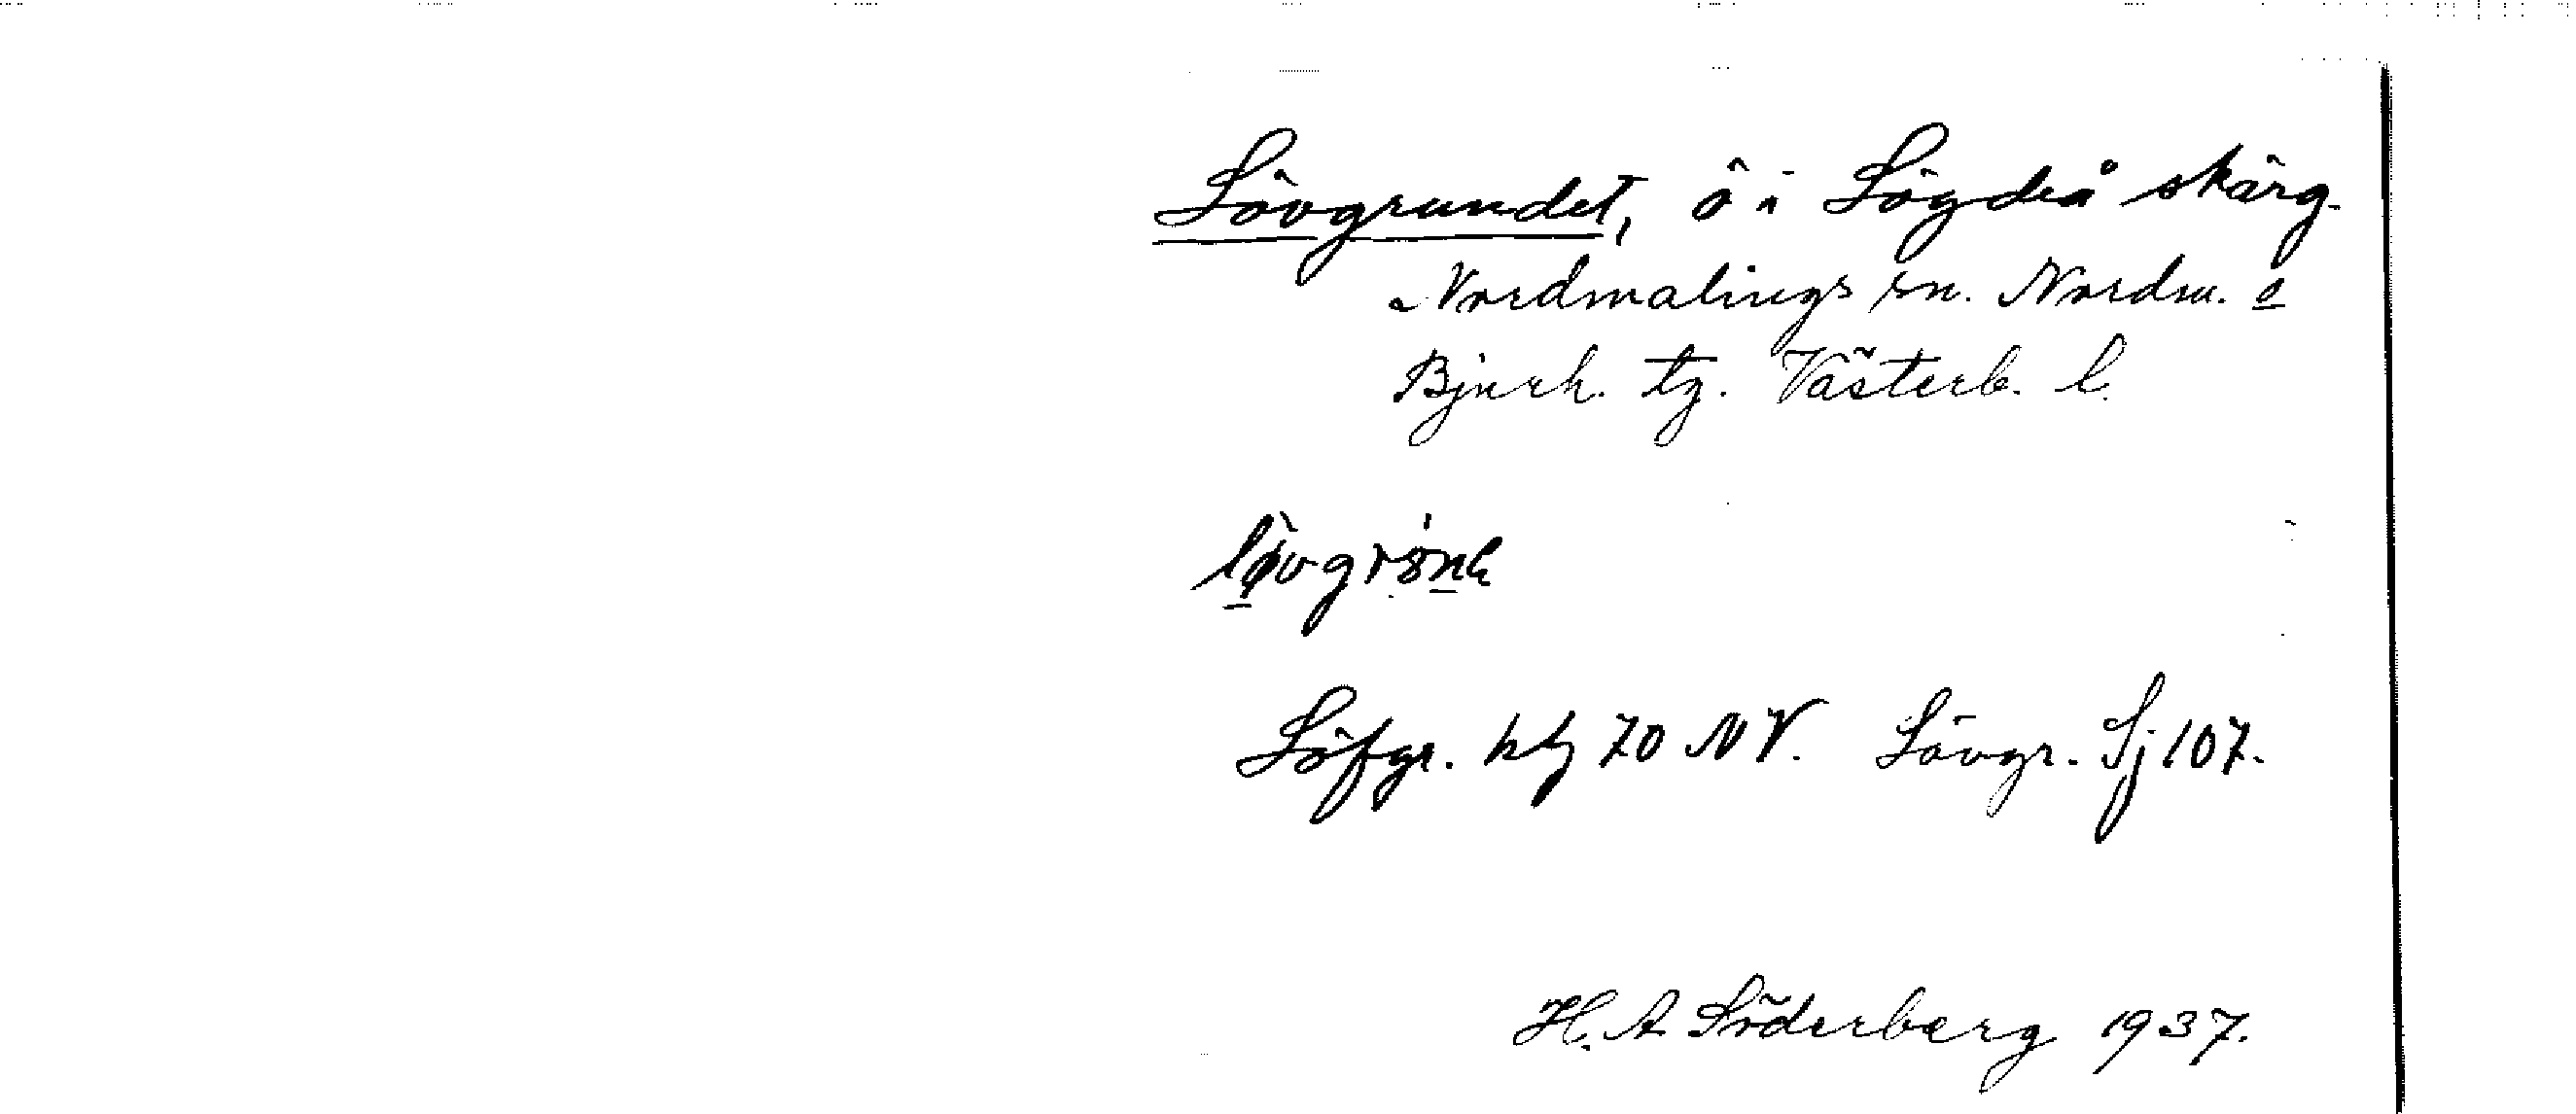 Lövgrundet, ö i Lögdeå skärg.
Nordmalings sn. Nordm. o
Bjurh. tg. Västerb. l.
Löfgr. ktj 70 NV. Lövgr. Sj 107.
H. A Söderberg 1937.